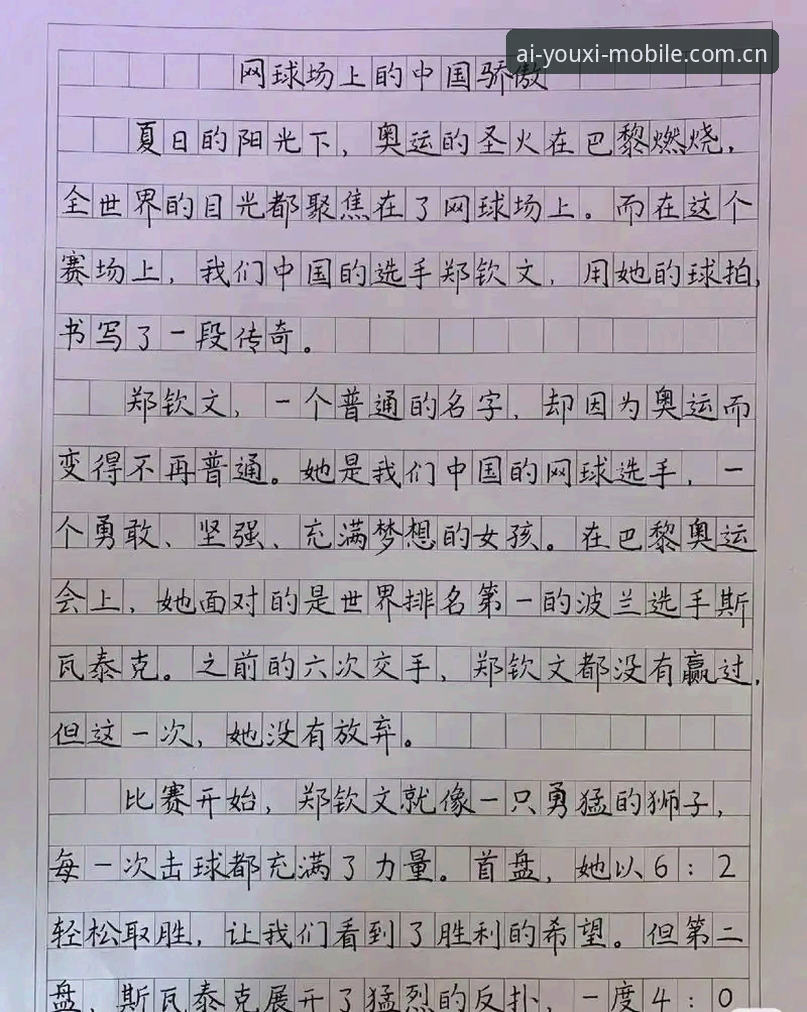 ai-youxi-mobile.com.cn
网球场上的中国骄傲
夏日的阳光下，奥运的圣火在巴黎燃烧，
全世界的目光都聚焦在了网球场上。而在这个
赛场上，我们中国的选手郑钦文，用她的球拍，
书写了一段传奇。
郑钦文，一个普通的名字，却因为奥运而
变得不再普通。她是我们中国的网球选手，一
个勇敢、坚强、充满梦想的女孩。在巴黎奥运
会上，她面对的是世界排名第一的波兰选手斯
瓦泰克。之前的六次交手，郑钦文都没有赢过，
但这一次，她没有放弃。
比赛开始，郑钦文就像一只勇猛的狮子，
每一次击球都充满了力量。首盘，她以6：2
轻松取胜，让我们看到了胜利的希望。但第二
盘，斯瓦泰克展开了猛烈的反扑，一度4：0